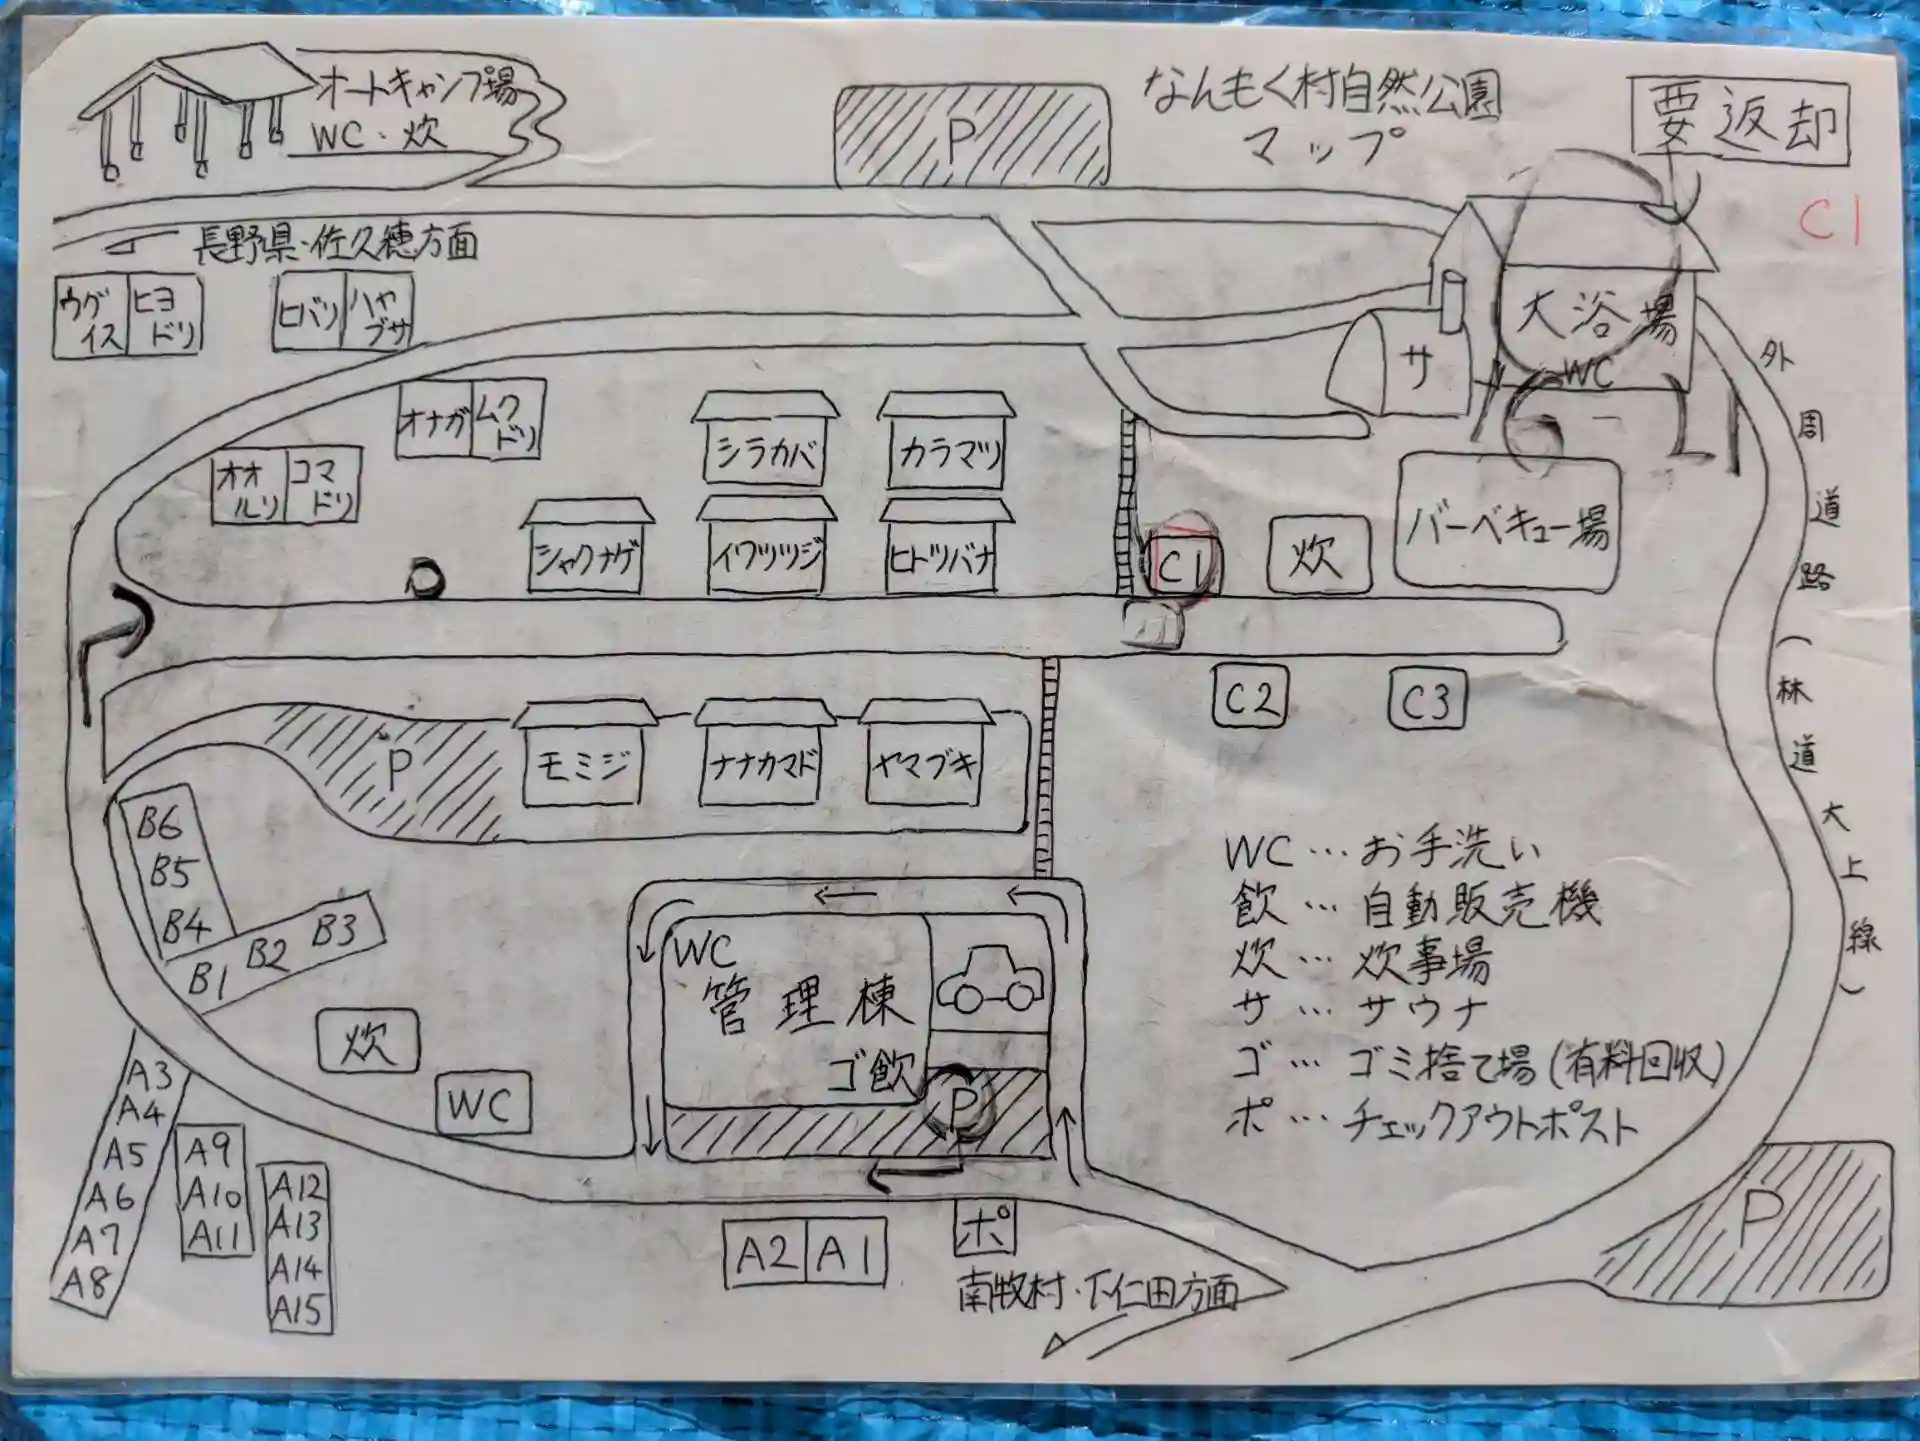 オートキャンプ場
WC・炊
P
なんもく村自然公園
マップ
要返却
C1
長野県・佐久穂方面
ウグイス
ヒヨドリ
ヒバリ
ハヤブサ
オナガ
ムクドリ
オオルリ
コマドリ
シラカバ
カラマツ
シャクナゲ
イワツツジ
ヒトツバナ
サ
大浴場
WC
バーベキュー場
C1
炊
C2
C3
外周道路(林道大上線)
P
モミジ
ナナカマド
ヤマブキ
B6
B5
B4
B1 B2 B3
炊
WC
WC
管理棟
ゴ飲
P
WC…お手洗い
飲…自動販売機
炊…炊事場
サ…サウナ
ゴ…ゴミ捨て場(有料回収)
ポ…チェックアウトポスト
A3
A4
A5
A6
A7
A8
A9
A10
A11
A12
A13
A14
A15
A2 A1
ポ
南牧村・下仁田方面
P